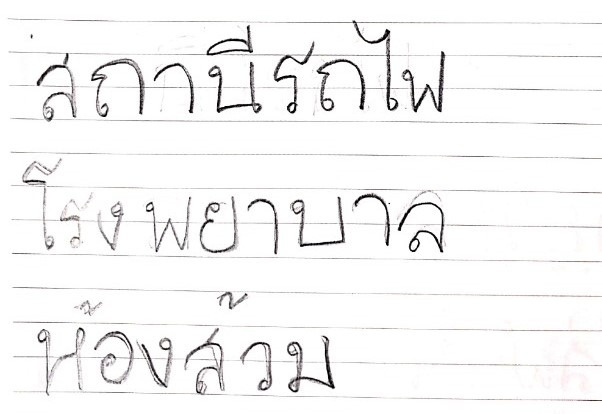 สถานีรถไฟ
โรงพยาบาล
ห้องส้วม